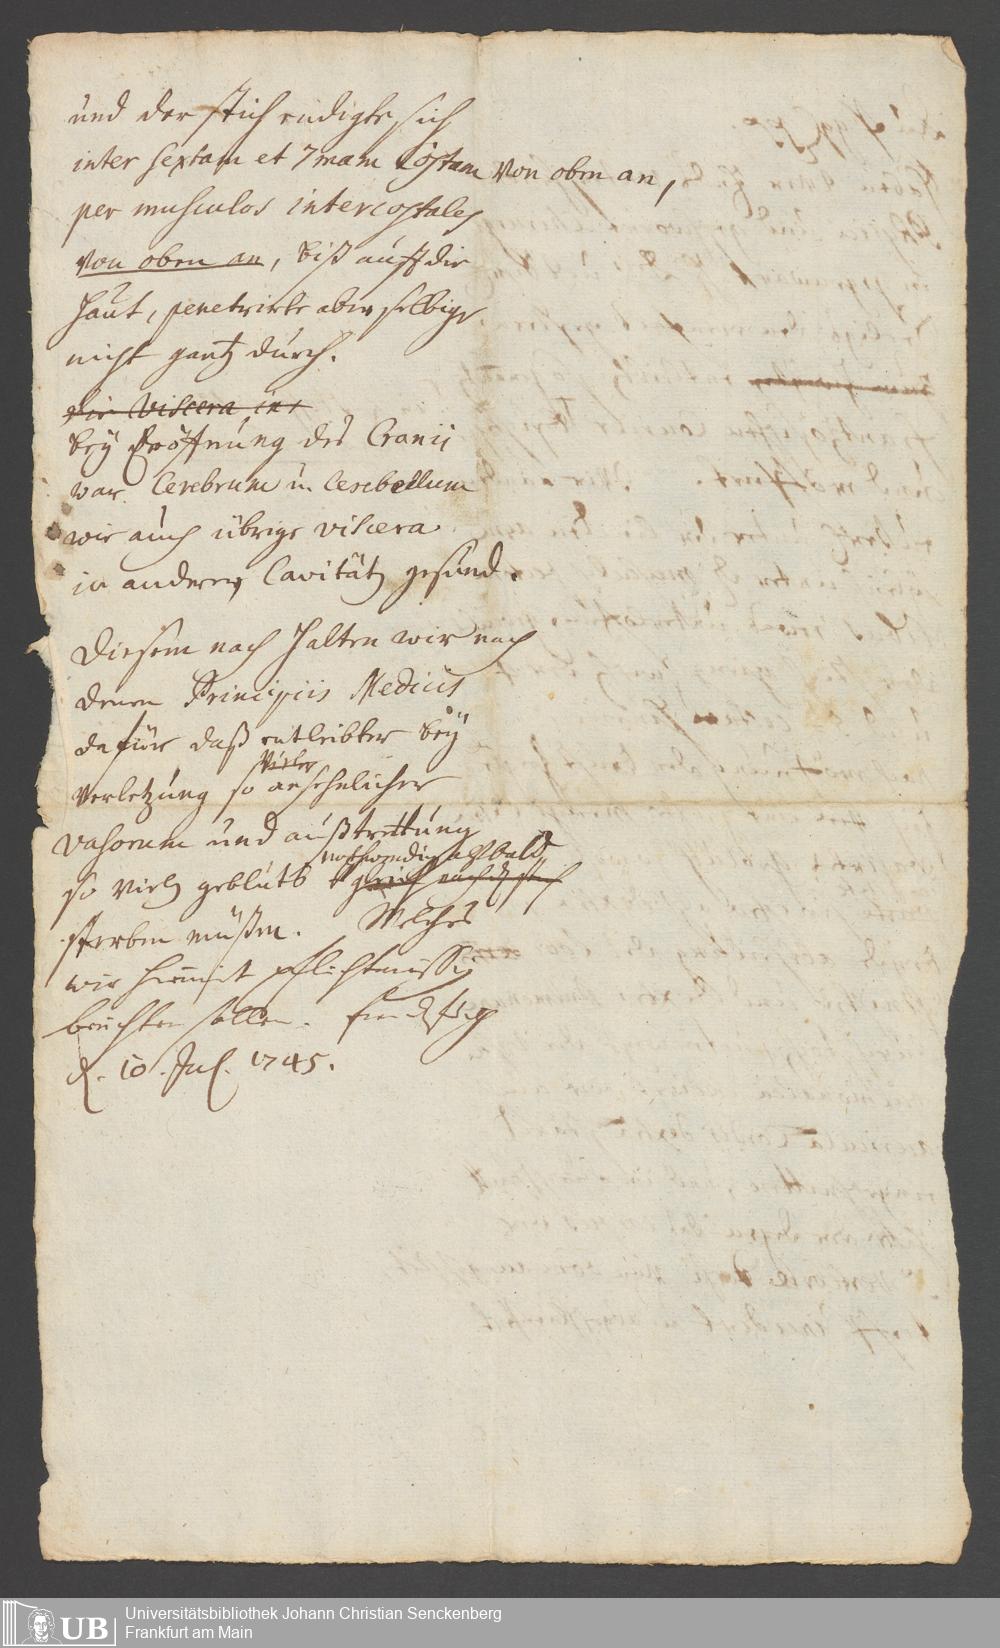 und der Stich endigte sich
inter sextam et 7mam Costam von oben an,
per musculos intercostales
von oben an, biß auff die
Haut, penetrirte aber selbige
nicht gantz durch.
die viscera in
bey Eröffnung des Cranii
war Cerebrum u. Cerebellum
wie auch übrige viscera
in anderen Cavität gesund.
Diesem nach halten wir nach
denen Principiis Medicis
dafür daß entleibter bey
vieler
Verletzung so ansehnlicher
vasorum und außtrettung
nothwendig alsbald
so vielen geblüts gleich nach dem stich
sterben müßen. Welches
wir hiermit pflichtmässig
berichten sollen.
d. 10. Jul. 1745.
UB
Universitätsbibliothek Johann Christian Senckenberg
Frankfurt am Main